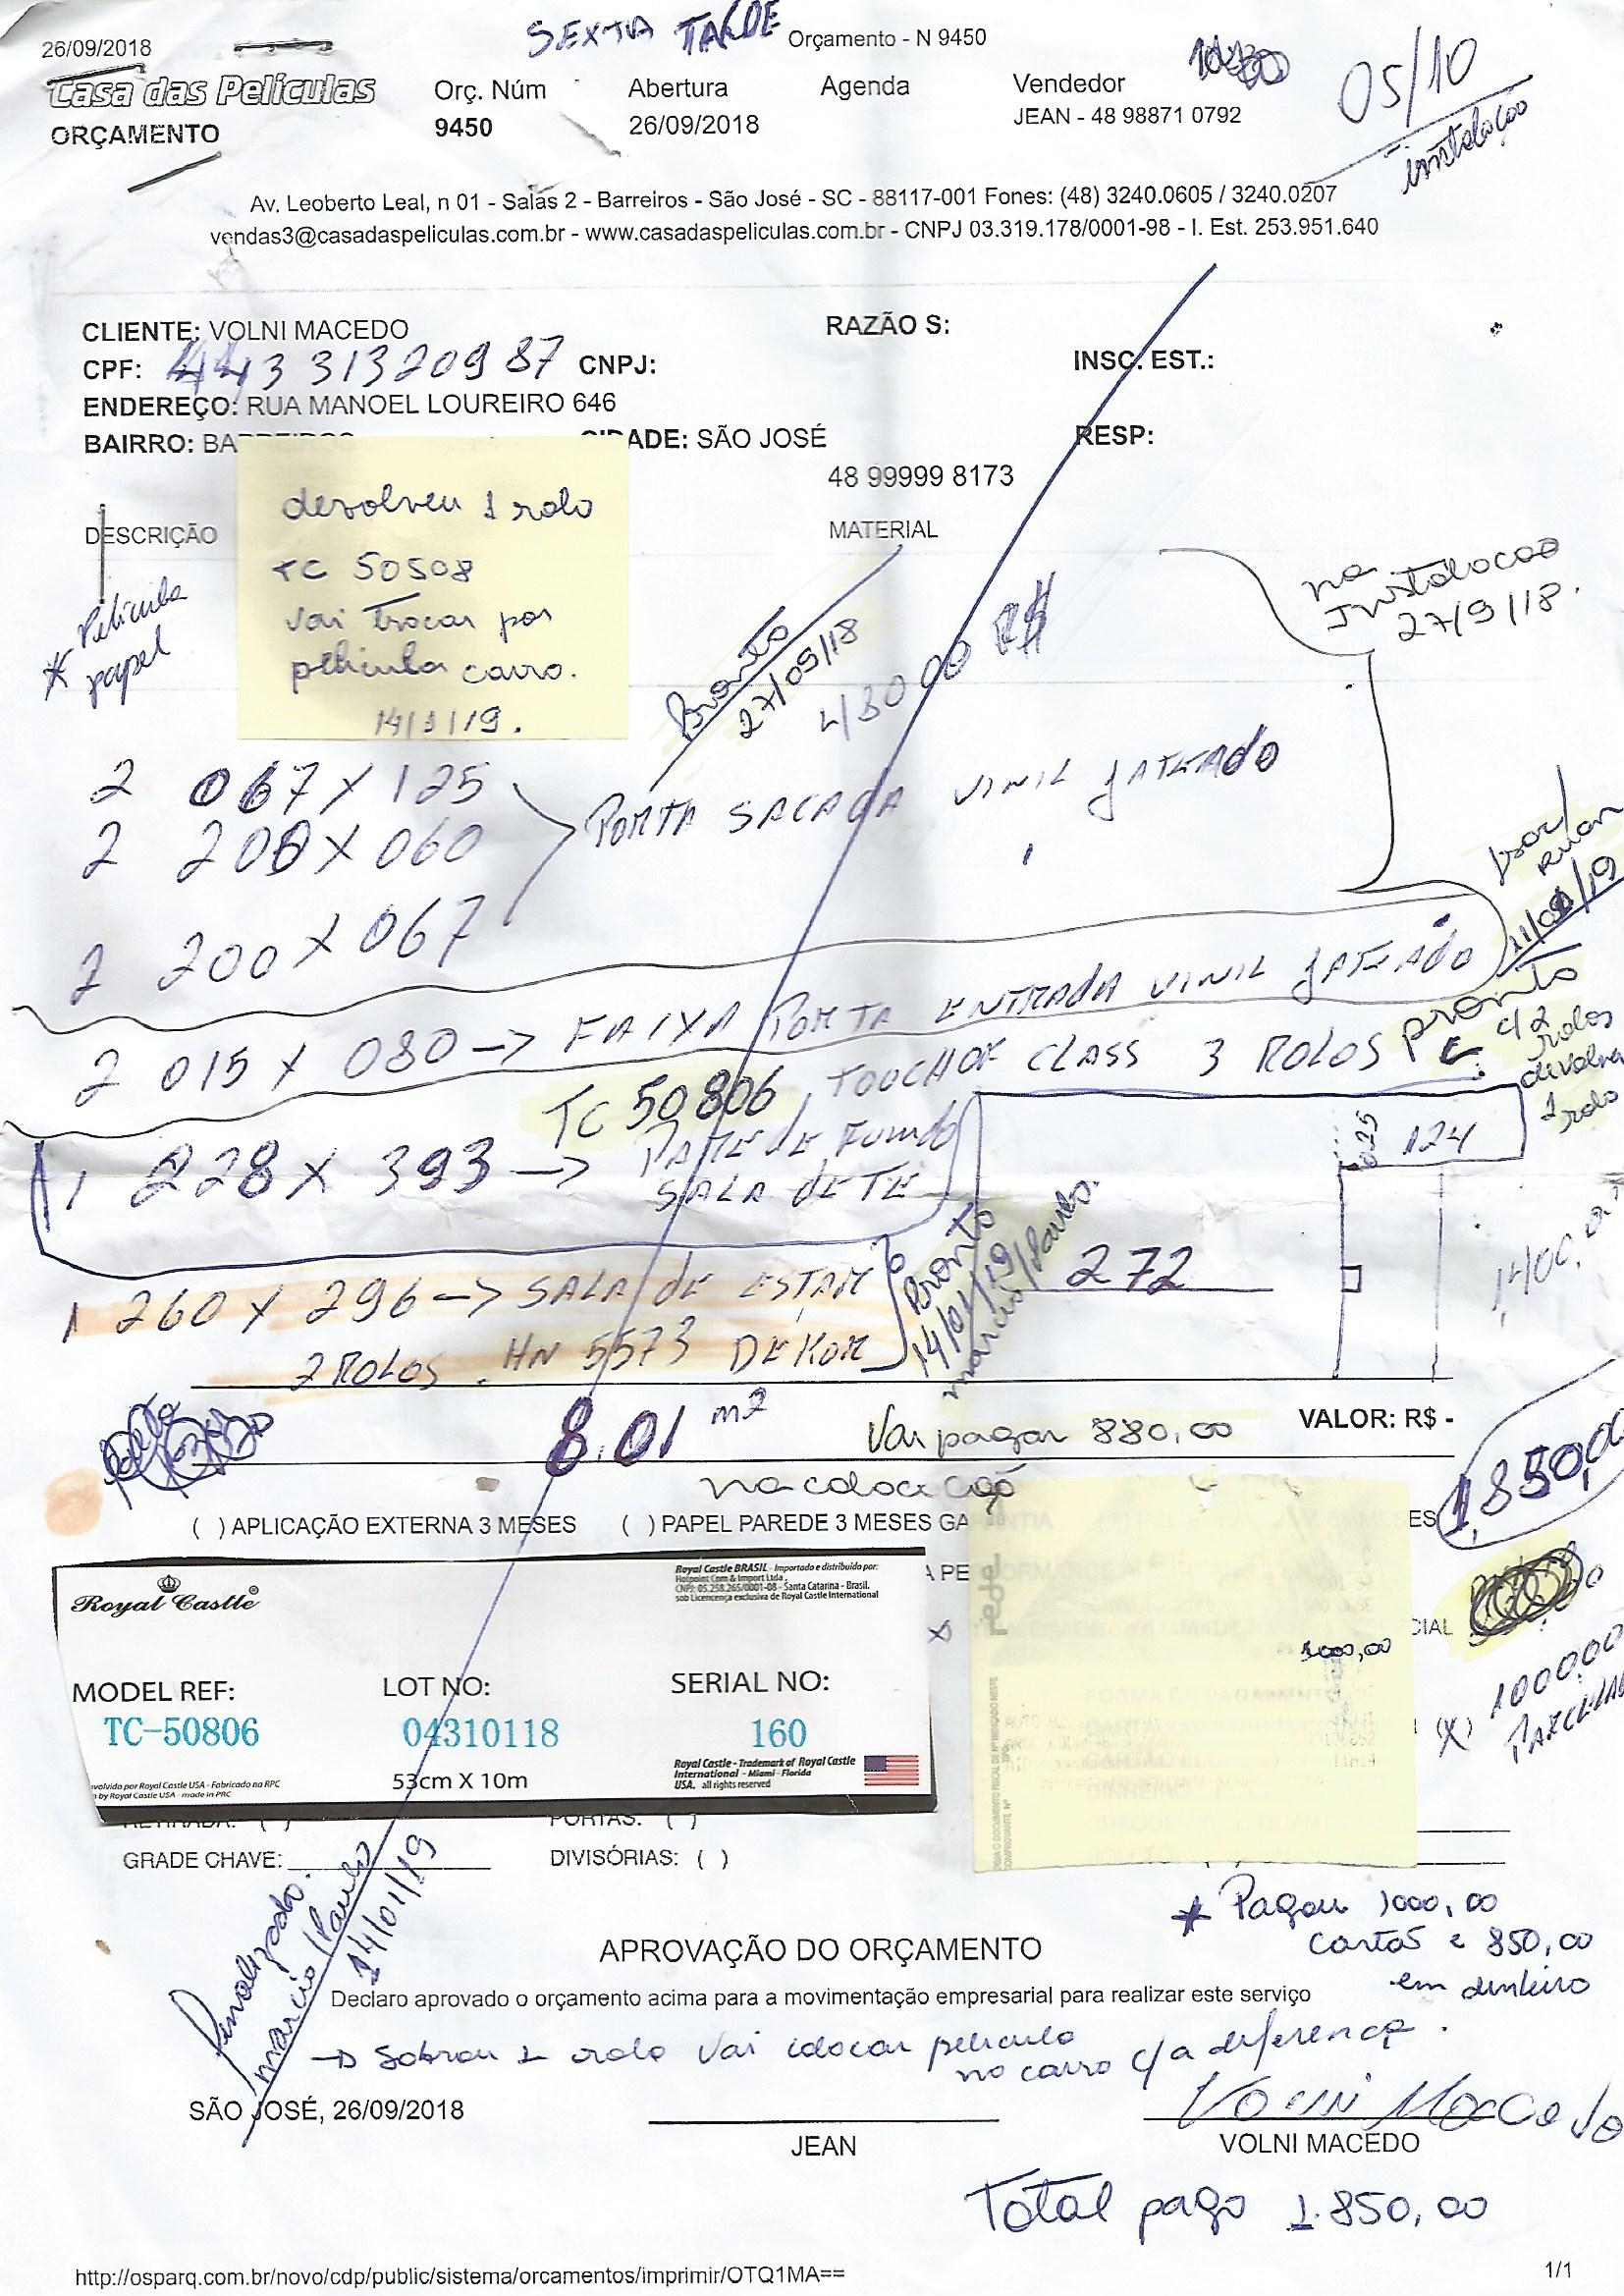 26/09/2018
SEXTA TARDE
Orçamento - N 9450
Casa das Películas
ORÇAMENTO
Orç. Núm
9450
Abertura
26/09/2018
Agenda
Vendedor
JEAN - 48 98871 0792
05/10
instalação
Av. Leoberto Leal, n 01 - Salas 2 - Barreiros - São José - SC - 88117-001 Fones: (48) 3240.0605 / 3240.0207
vendas3@casadaspeliculas.com.br - www.casadaspeliculas.com.br - CNPJ 03.319.178/0001-98 - I. Est. 253.951.640
CLIENTE: VOLNI MACEDO
RAZÃO S:
CPF: 443 313209 87 CNPJ:
INSC. EST.:
ENDEREÇO: RUA MANOEL LOUREIRO 646
BAIRRO: BARREIROS
CIDADE: SÃO JOSÉ
RESP:
48 99999 8173
DESCRIÇÃO
MATERIAL
devolveu 1 rolo
TC 50508
Vai Trocar por
pelicula carro.
14/1/19.
* Pelicula
papel
Pronto
27/09/18
430 00 R$
na
Instalocao
27/9/18.
2 067 X 125
2 200 X 060
2 200 X 067
PORTA SACADA VINIL JATEADO
2 015 X 080 -> FAIXA PORTA ENTRADA VINIL JATEADO
TC 50806, TOUCH OF CLASS 3 ROLOS
pronto
11/01/19
c/2
rolos
devolveu
1 rolo
1 228 X 393 -> PAREDE FUNDO
SALA DE TE
025
124
272
1400,0
1 260 X 296 -> SALA DE ESTAR
2 ROLOS . HN 5573 DEKOR
Pronto
14/01/19
marcio/Paulo.
8.01 m2
Vai pagar 880,00
na colocação
VALOR: R$ -
1,850,0
( ) APLICAÇÃO EXTERNA 3 MESES
( ) PAPEL PAREDE 3 MESES GA
ES
A PE
CIAL
rede
1000,00
(X) 1000,00
Royal Castle®
Royal Castle BRASIL - Importado e distribuido por:
Hotpoint Com & Import Ltda
CNPJ: 05.258.265/0001-08 - Santa Catarina - Brasil.
sob Licencença exclusiva de Royal Castle International
MODEL REF:
TC-50806
LOT NO:
04310118
SERIAL NO:
160
53cm X 10m
volvido por Royal Castle USA - Fabricado na RPC
by Royal Castle USA - made in PRC
Royal Castle - Trademark of Royal Castle
International - Miami - Florida
USA. all rights reserved
RETIRADA: ( )
PORTAS: ( )
GRADE CHAVE:
DIVISÓRIAS: ( )
Finalizado.
marcio/Paulo
14/01/19
* Pagou 1000,00
cartão e 850,00
em dinheiro
APROVAÇÃO DO ORÇAMENTO
Declaro aprovado o orçamento acima para a movimentação empresarial para realizar este serviço
-> Sobrou 1 rolo Vai colocar pelicula
no carro c/a diferença.
SÃO JOSÉ, 26/09/2018
Volni Macedo
JEAN
VOLNI MACEDO
Total pago 1.850,00
http://osparq.com.br/novo/cdp/public/sistema/orcamentos/imprimir/OTQ1MA==
1/1